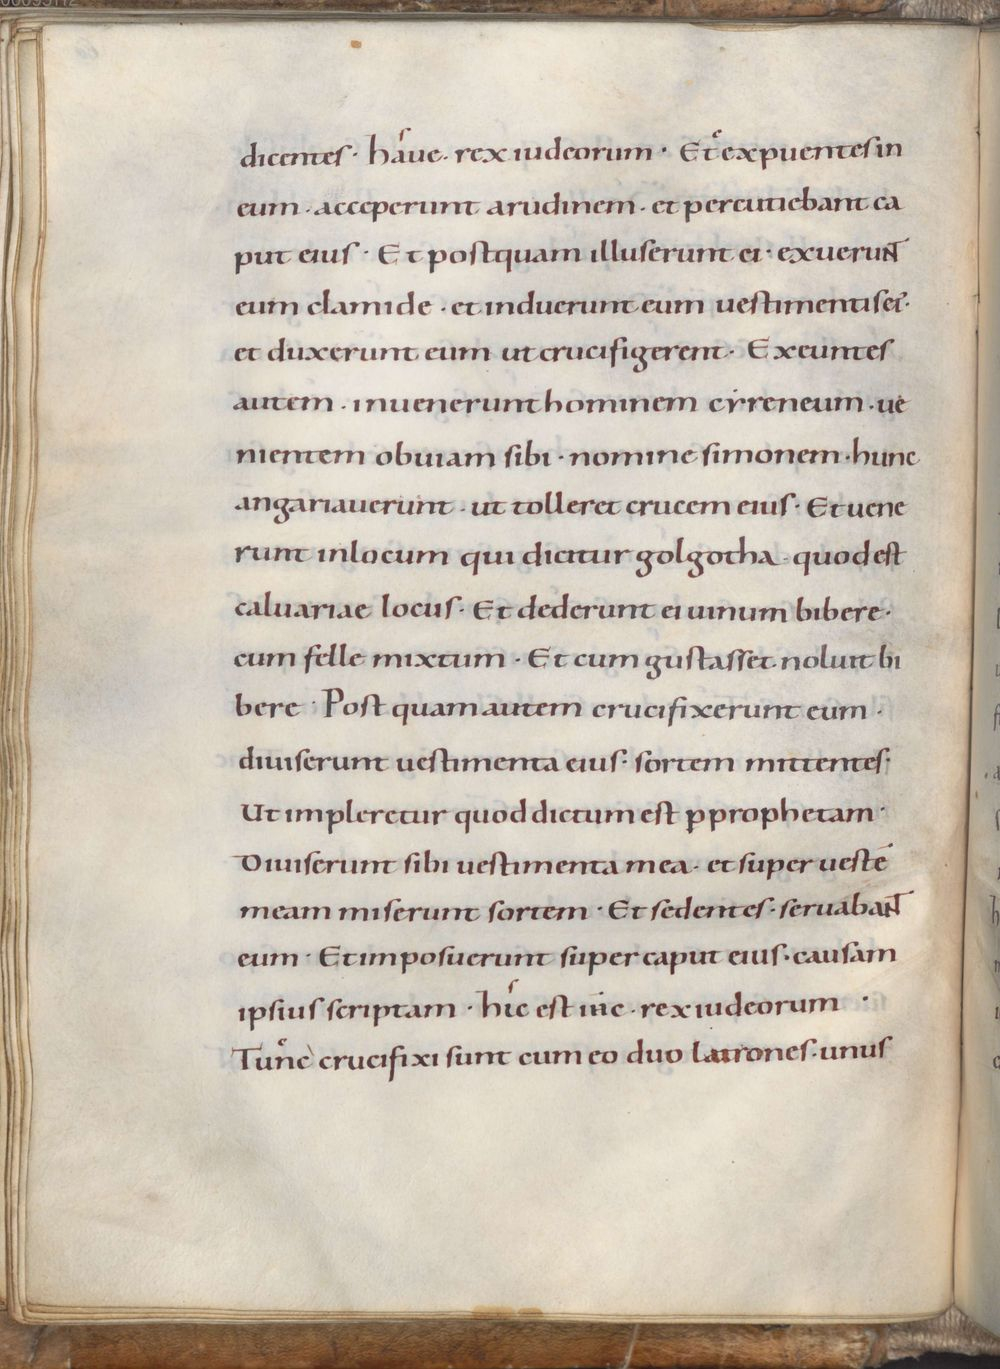 dicentes· haue· rex iudeorum· Et expuentes in
eum· acceperunt arudinem· et percutiebant ca
put eius· Et postquam illuserunt ei· exuerunt
eum clamide· et induerunt eum uestimentis ei᾿·
et duxerunt eum ut crucifigerent· Exeuntes
autem· inuenerunt hominem cẏreneum· ue
nientem obuiam sibi· nomine simonem· hunc
angariauerunt· ut tolleret crucem eius· Et uene
runt in locum qui dicitur golgotha· quod est
caluariae locus· Et dederunt ei uinum bibere·
cum felle mixtum· Et cum gustasset· noluit bi
bere· Post quam autem crucifixerunt eum·
diuiserunt uestimenta eius· sortem mittentes·
Ut impleretur quod dictum est ꝑ prophetam·
Diuiserunt sibi uestimenta mea· et super uestē
meam miserunt sortem· Et sedentes· seruabant
eum· Et imposuerunt super caput eius· causam
ipsius scriptam· hic est · rex iudeorum·
Tunc crucifixi sunt cum eo duo latrones· unus